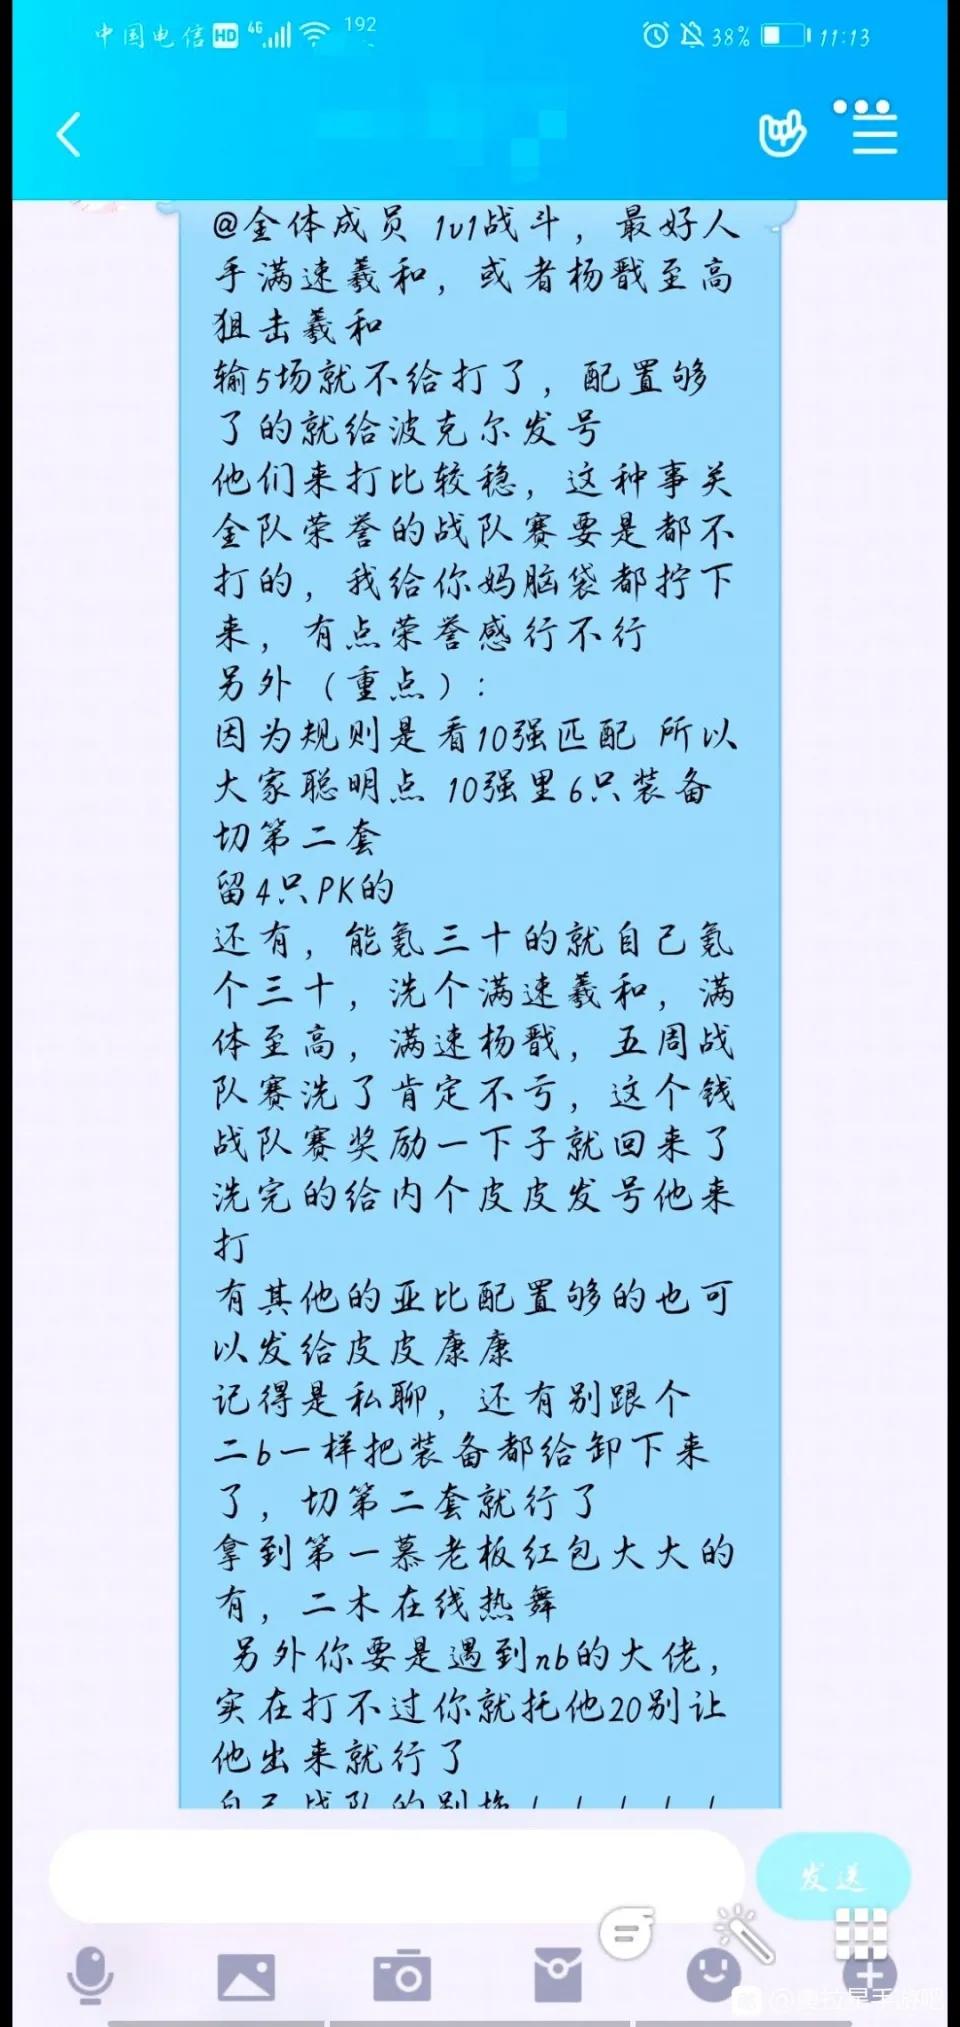 中国电信 HD 4G 192 38% 11:13
@全体成员 1v1战斗，最好人
手满速羲和，或者杨戬至高
狙击羲和
输5场就不给打了，配置够
了的就给波克尔发号
他们来打比较稳，这种事关
全队荣誉的战队赛要是都不
打的，我给你妈脑袋都拧下
来，有点荣誉感行不行
另外（重点）：
因为规则是看10强匹配 所以
大家聪明点 10强里6只装备
切第二套
留4只PK的
还有，能氪三十的就自己氪
个三十，洗个满速羲和，满
体至高，满速杨戬，五周战
队赛洗了肯定不亏，这个钱
战队赛奖励一下子就回来了
洗完的给内个皮皮发号他来
打
有其他的亚比配置够的也可
以发给皮皮康康
记得是私聊，还有别跟个
二b一样把装备都给卸下来
了，切第二套就行了
拿到第一慕老板红包大大的
有，二木在线热舞
另外你要是遇到nb的大佬，
实在打不过你就托他20别让
他出来就行了
自己战队的别
发送
@奥拉星手游吧